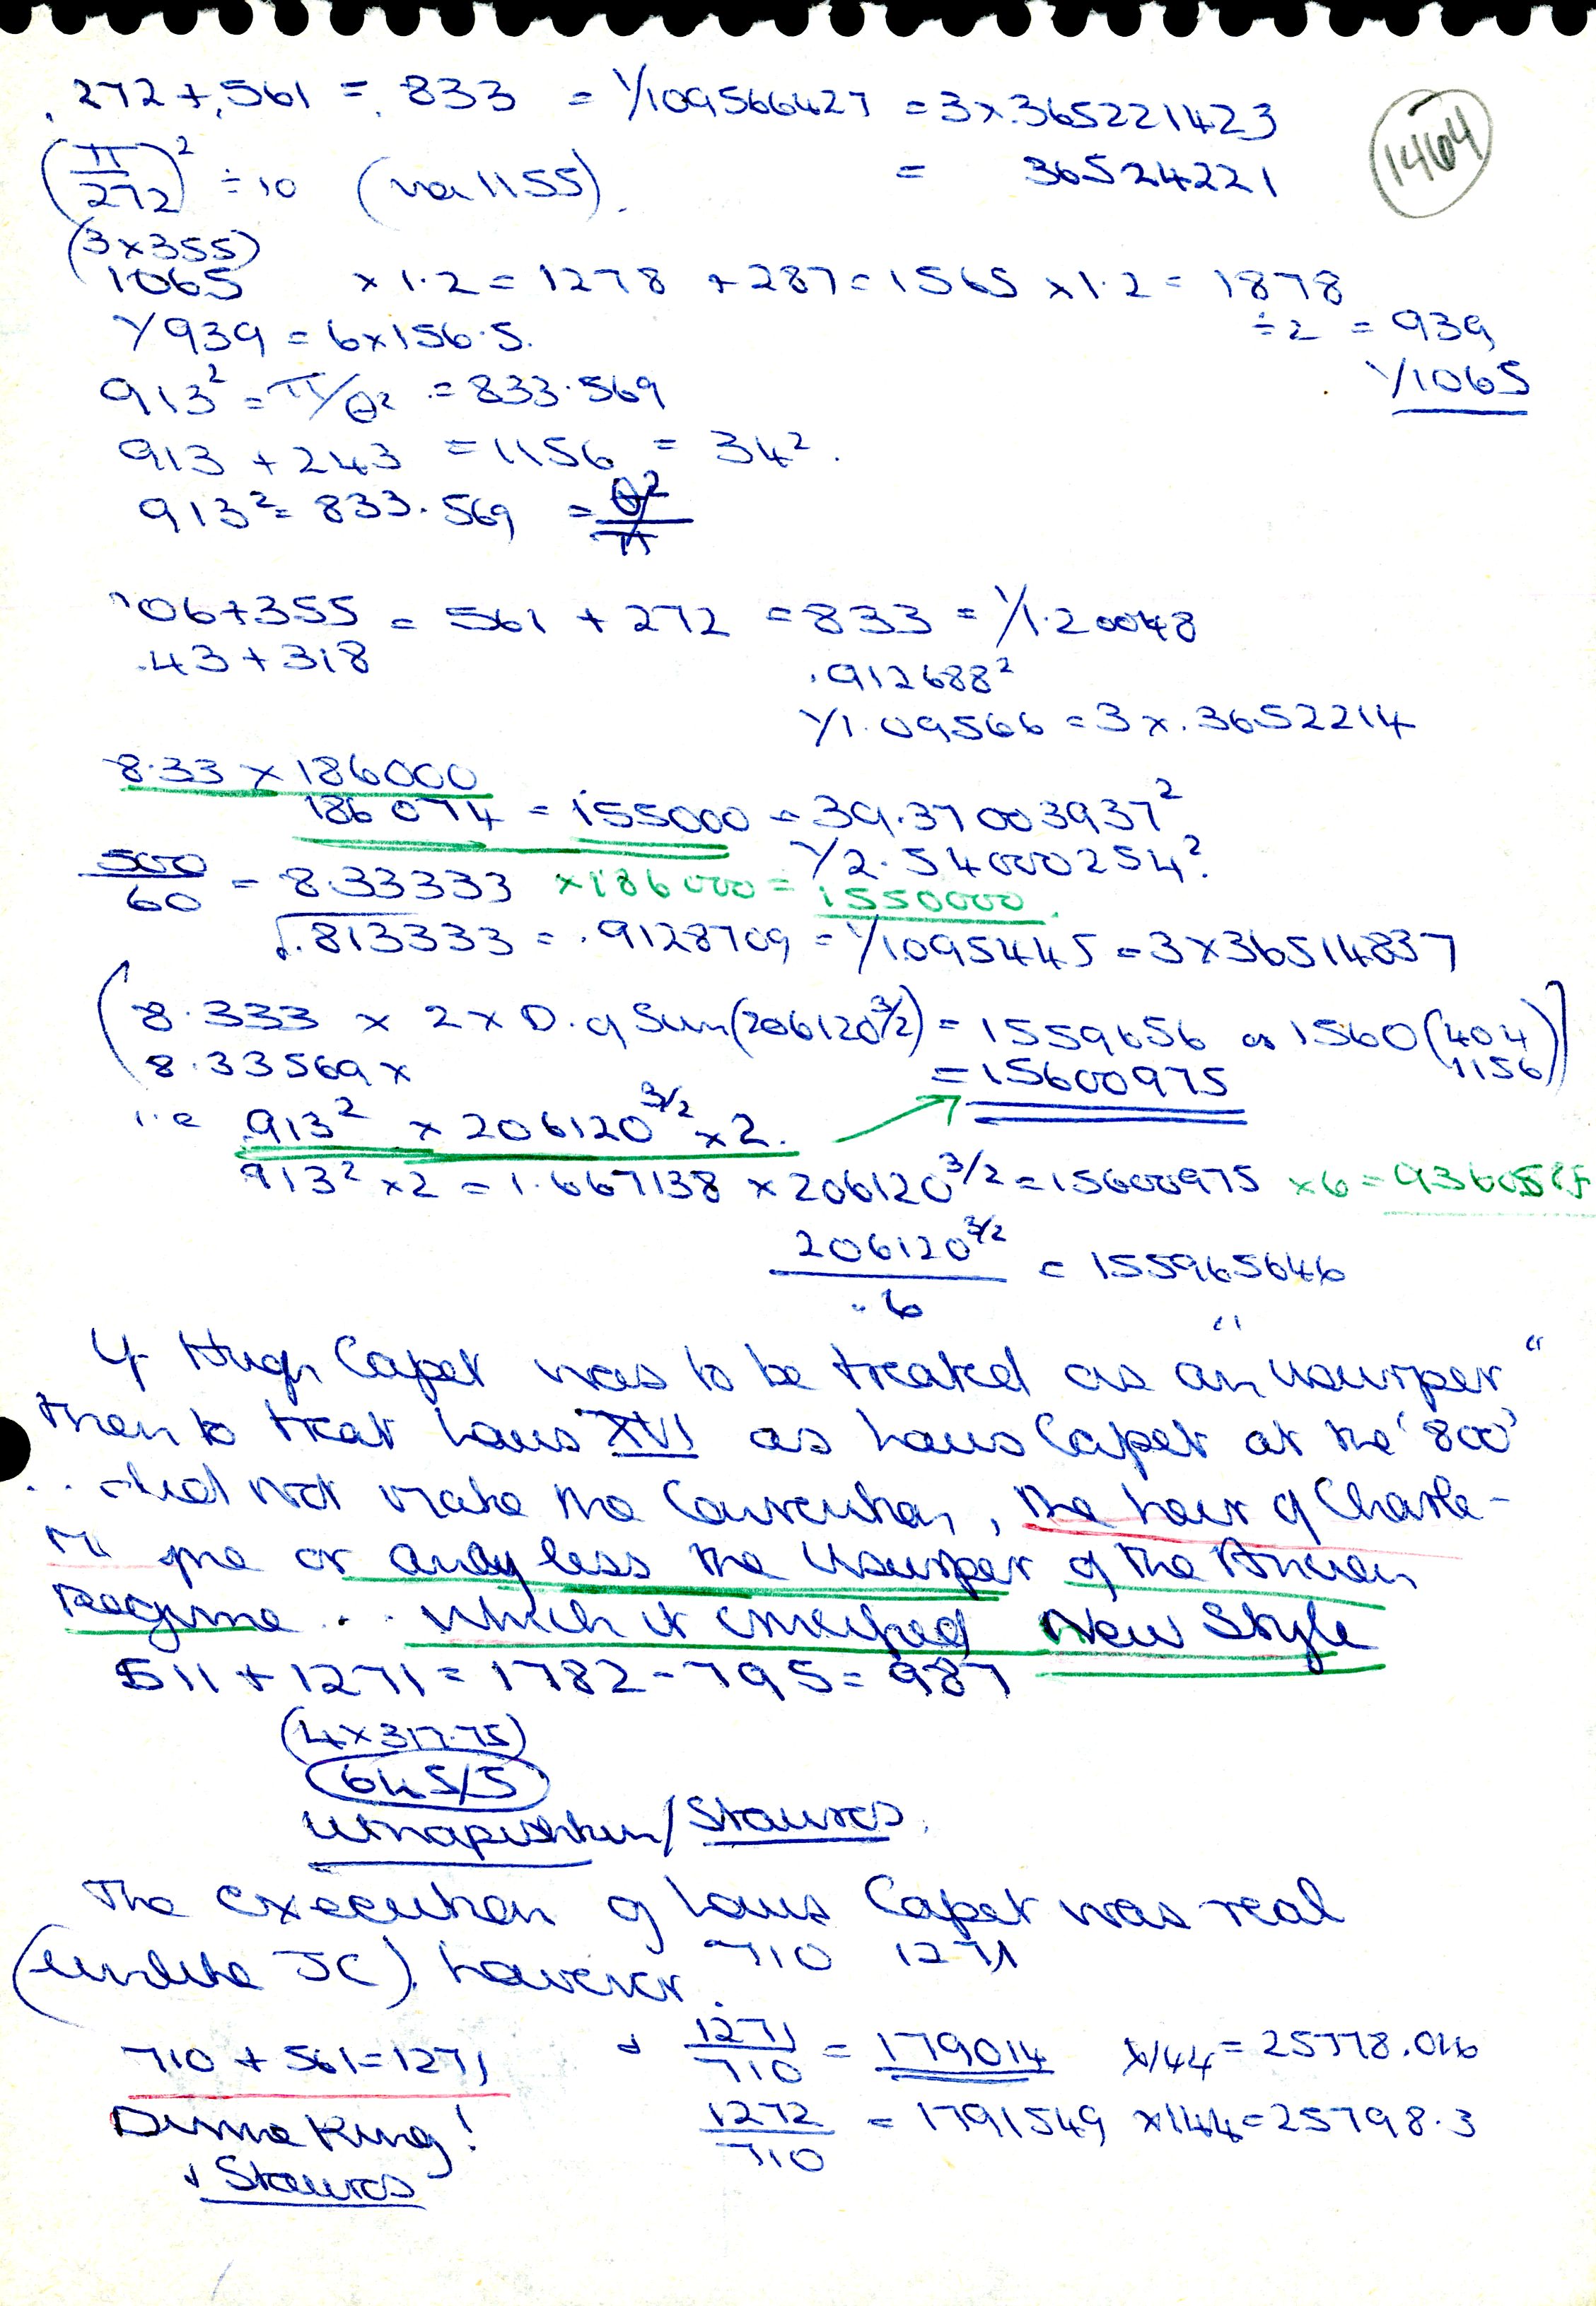 .272 + .561 = .833 = 1/109566427 = 3 x .365221423
(π/272)² ÷ 10 (via 1155). = 36524221
1464
(3 x 355)
1065 x 1.2 = 1278 + 287 = 1565 x 1.2 = 1878
1/939 = 6 x 156.5. ÷ 2 = 939
913² = π/θ² = 833.569 1/1065
913 + 243 = 1156 = 34².
913² = 833.569 = θ²/π
'06 + 355 = 561 + 272 = 833 = 1/1.20048
.43 + 318 .912688²
1/1.09566 = 3 x .3652214
8.33 x 186000
186074 = 155000 = 39.37003937²
1/2.54000254²
500/60 = 8.33333 x 186000 = 1550000.
√.813333 = .9128709 = 1/1095445 = 3 x 36514837
(8.333 x 2 x D. of Sun (206120^3/2) = 1559656 or 1560 (404
8.33569 x = 15600975 1156))
i.e .913² x 206120^3/2 x 2.
913² x 2 = 1.667138 x 206120^3/2 = 15600975 x 6 =
206120^3/2 / .6 = 155965646
If Hugh Capet was to be treated as an "usurper"
then to treat Louis XVI as Louis Capet at the '800'
.. did not make the Convention, the heir of Charle-
gne or any less the Usurper of the Ancien
Regime . . . which it emerged New Style
511 + 1271 = 1782 - 795 = 987
(4 x 317.75)
645/5
Utnapishtim / Stauros.
The execution of Louis Capet was real
710 1271
(unlike JC). however.
710 + 561 = 1271 & 1271/710 = 179014 x 144 = 25778.016
Divine King! 1272/710 = 1791549 x 144 = 25798.3
& Stauros